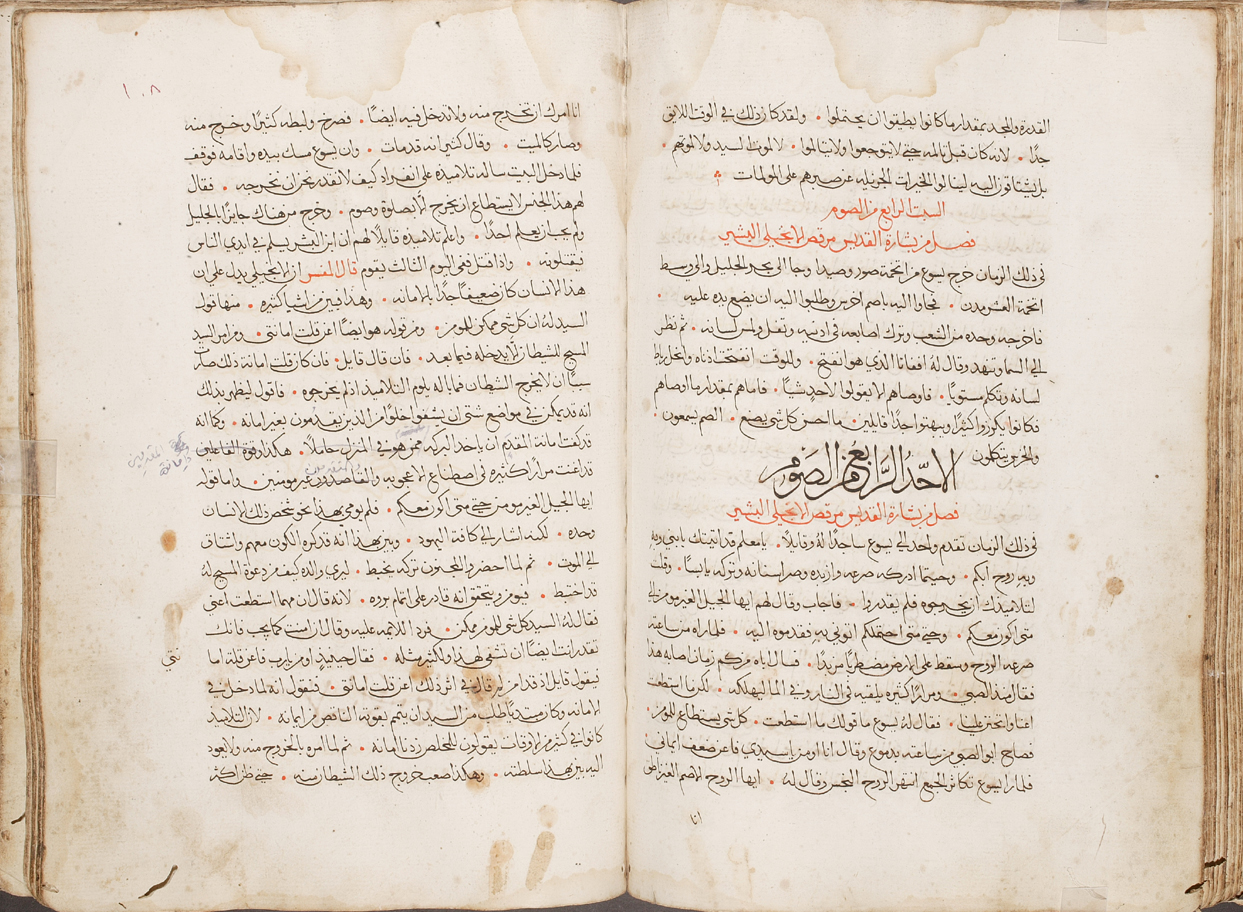 القدرة والمجد بمقدار ما كانوا يطيقوا ان يحتملوا • ولقد كان ذلك في الوقت اللايق
جدًا • لانه كان قبل تالمه حتي لا يتوجعوا ولا يتالموا • لا لموت السيد ولا لموتهم •
بل يشتاقوا اليه لينالوا الخيرات الجزيله عن صبرهم على المولمات
السبت الرابع من الصوم
فصل من بشارة القديس مرقص الانجيلي البشير
في ذلك الزمان خرج يسوع من اتخمة صور وصيدا وجا الى بحر الجليل والى وسط
اتخمة العشرمدن • فجاوا اليه باصم اخرس وطلبوا اليه ان يضع يده عليه •
فاخرجه وحده من الشعب وترك اصابعه في اذنيه وتفل ولمس لسانه • ثم نظر
الى السما وتنهد وقال له افثاثا الذي هو انفتح • وللوقت انفتحت اذناه وانحل رباط
لسانه وتكلم مستويًا • فاوصاهم الا يقولوا لاحد شيًا • فاما هم بمقدار ما اوصاهم
فكانوا يكرزوا كثيرًا ويبهتوا جدًا قايلين • ما احسن كل شي يصنع • الصم يسمعون •
والخرس يتكلمون
الاحد الرابع من الصوم
فصل من بشارة القديس مرقص الانجيلي البشير
في ذلك الزمان تقدم واحد الى يسوع ساجدًا له وقايلًا • يا معلم قد اتيتك بابني وبه
وبه روح ابكم • وحيثما ادركه صرعه وازبده وصر اسنانه وتركه يابسًا • وقلت
لتلاميذك ان يخرجوه فلم يقدروا • فاجاب وقال لهم ايها الجيل الغير مومن الى
متى اكون معكم • وحتي متى احتملكم اتوني به فقدموه اليه • فلما راه من ساعته
صرعه الروح وسقط على الارض مضطربًا مزبدًا • فسال اباه من كم زمان اصابه هذا
فقال منذ الصبي • ومرارًا كثيره يلقيه في النار وفي الما ليهلكه • لكن ما استطعت
اعنا وتحنن علينا • فقال له يسوع ما قولك ما استطعت • كل شي يستطاع للمومن •
فصاح ابو الصبي من ساعته بدموع وقال انا اومن يا سيدي فاعن ضعف ايماني •
فلما راي يسوع تكاثر الجمع انتهر الروح النجس وقال له • ايها الروح الاصم الغير ناطق
انا
١٠٨
انا امرك ان تخرج منه ولا تدخل فيه ايضًا • فصرخ ولبطه كثيرًا وخرج منه
وصار كالميت • وقال كثير انه قد مات • وان يسوع مسك بيده واقامه فوقف
فلما دخل البيت ساله تلاميذه على انفراد كيف لا نقدر نحن ان نخرجه • فقال
لهم هذا الجنس لا يستطاع ان يخرج الا بصلوة وصوم • وخرج من هناك جايزًا بالجليل
ولم يحب ان يعلم احدًا • واعلم تلاميذه قايلًا لهم ان ابن البشر يسلم في ايدي الناس
فيقتلونه • واذا قتل ففي اليوم الثالث يقوم قال المفسر ان الانجيلي يدل على ان
هذا الانسان كان ضعيفًا جدًا بالامانه • وهذا يبين من اشيا كثيره • منها قول
السيد له ان كل شي ممكن للمومن • ومن قوله هو ايضًا اعن قلت امانتي • ومن امر السيد
المسيح للشيطان الا يدخله فيما بعد • فان قال قايل • فان كان قلت امانته ذلك صارت
سببًا ان لا يخرج الشيطان فما باله يلوم التلاميذ اذ لم يخرجوه • فاقول ليظهر بذلك
انه قد يمكن في مواضع شتى ان يشفوا خلقًا من الذين يقدمون بغير امانه • وكما انه
قد كفت امانة المقدم ان ياخذ البركه ممن هو في المنزل حاملًا • هكذا وقوة الفاعلين
قد اغنت مرارًا كثيره في اصطناع الاعجوبه والقاصدون غير مومنين • واما قوله
ايها الجيل الغير مومن حتي متى اكون معكم • فلم يومي بهذا نحو شخص ذلك الانسان
وحده • لكنه اشار الى كافة اليهود • وبين بهذا انه قد كره الكون معهم واشتاق
الى الموت • ثم لما احضر والمجنون تركه يخبط • ليري والده كيف من دعوة المسيح له
قد اختبط • فيومن ويتحقق انه قادر على اتمام بروه • لانه قال ان مهما استطعت اعني
فقال له السيد كل شي للمومن ممكن • فرد اللايمه عليه وقال ان امنت كما يجب فانك
تقدر انت ايضًا ان تشفي لهذا ولكثير مثله • فقال حينيذ اومن يا رب فاعن قلة اما
نتي
فيقول قايل اذ قد امن لم قال في اثر ذلك اعن قلت امانتي • فنقول انه لما دخل في
الامانه وكان مبتديًا طلب من السيد ان يتمم بقوته الناقص من ايمانه • لان التلاميذ
كانوا في كثير من الاوقات يقولون للمخلص زدنا امانه • ثم لما امره بالخروج منه ولا يعود
اليه بين بهذا سلطنته • وهكذا صعب خروج ذلك الشيطان منه • حتي ظن اكثر